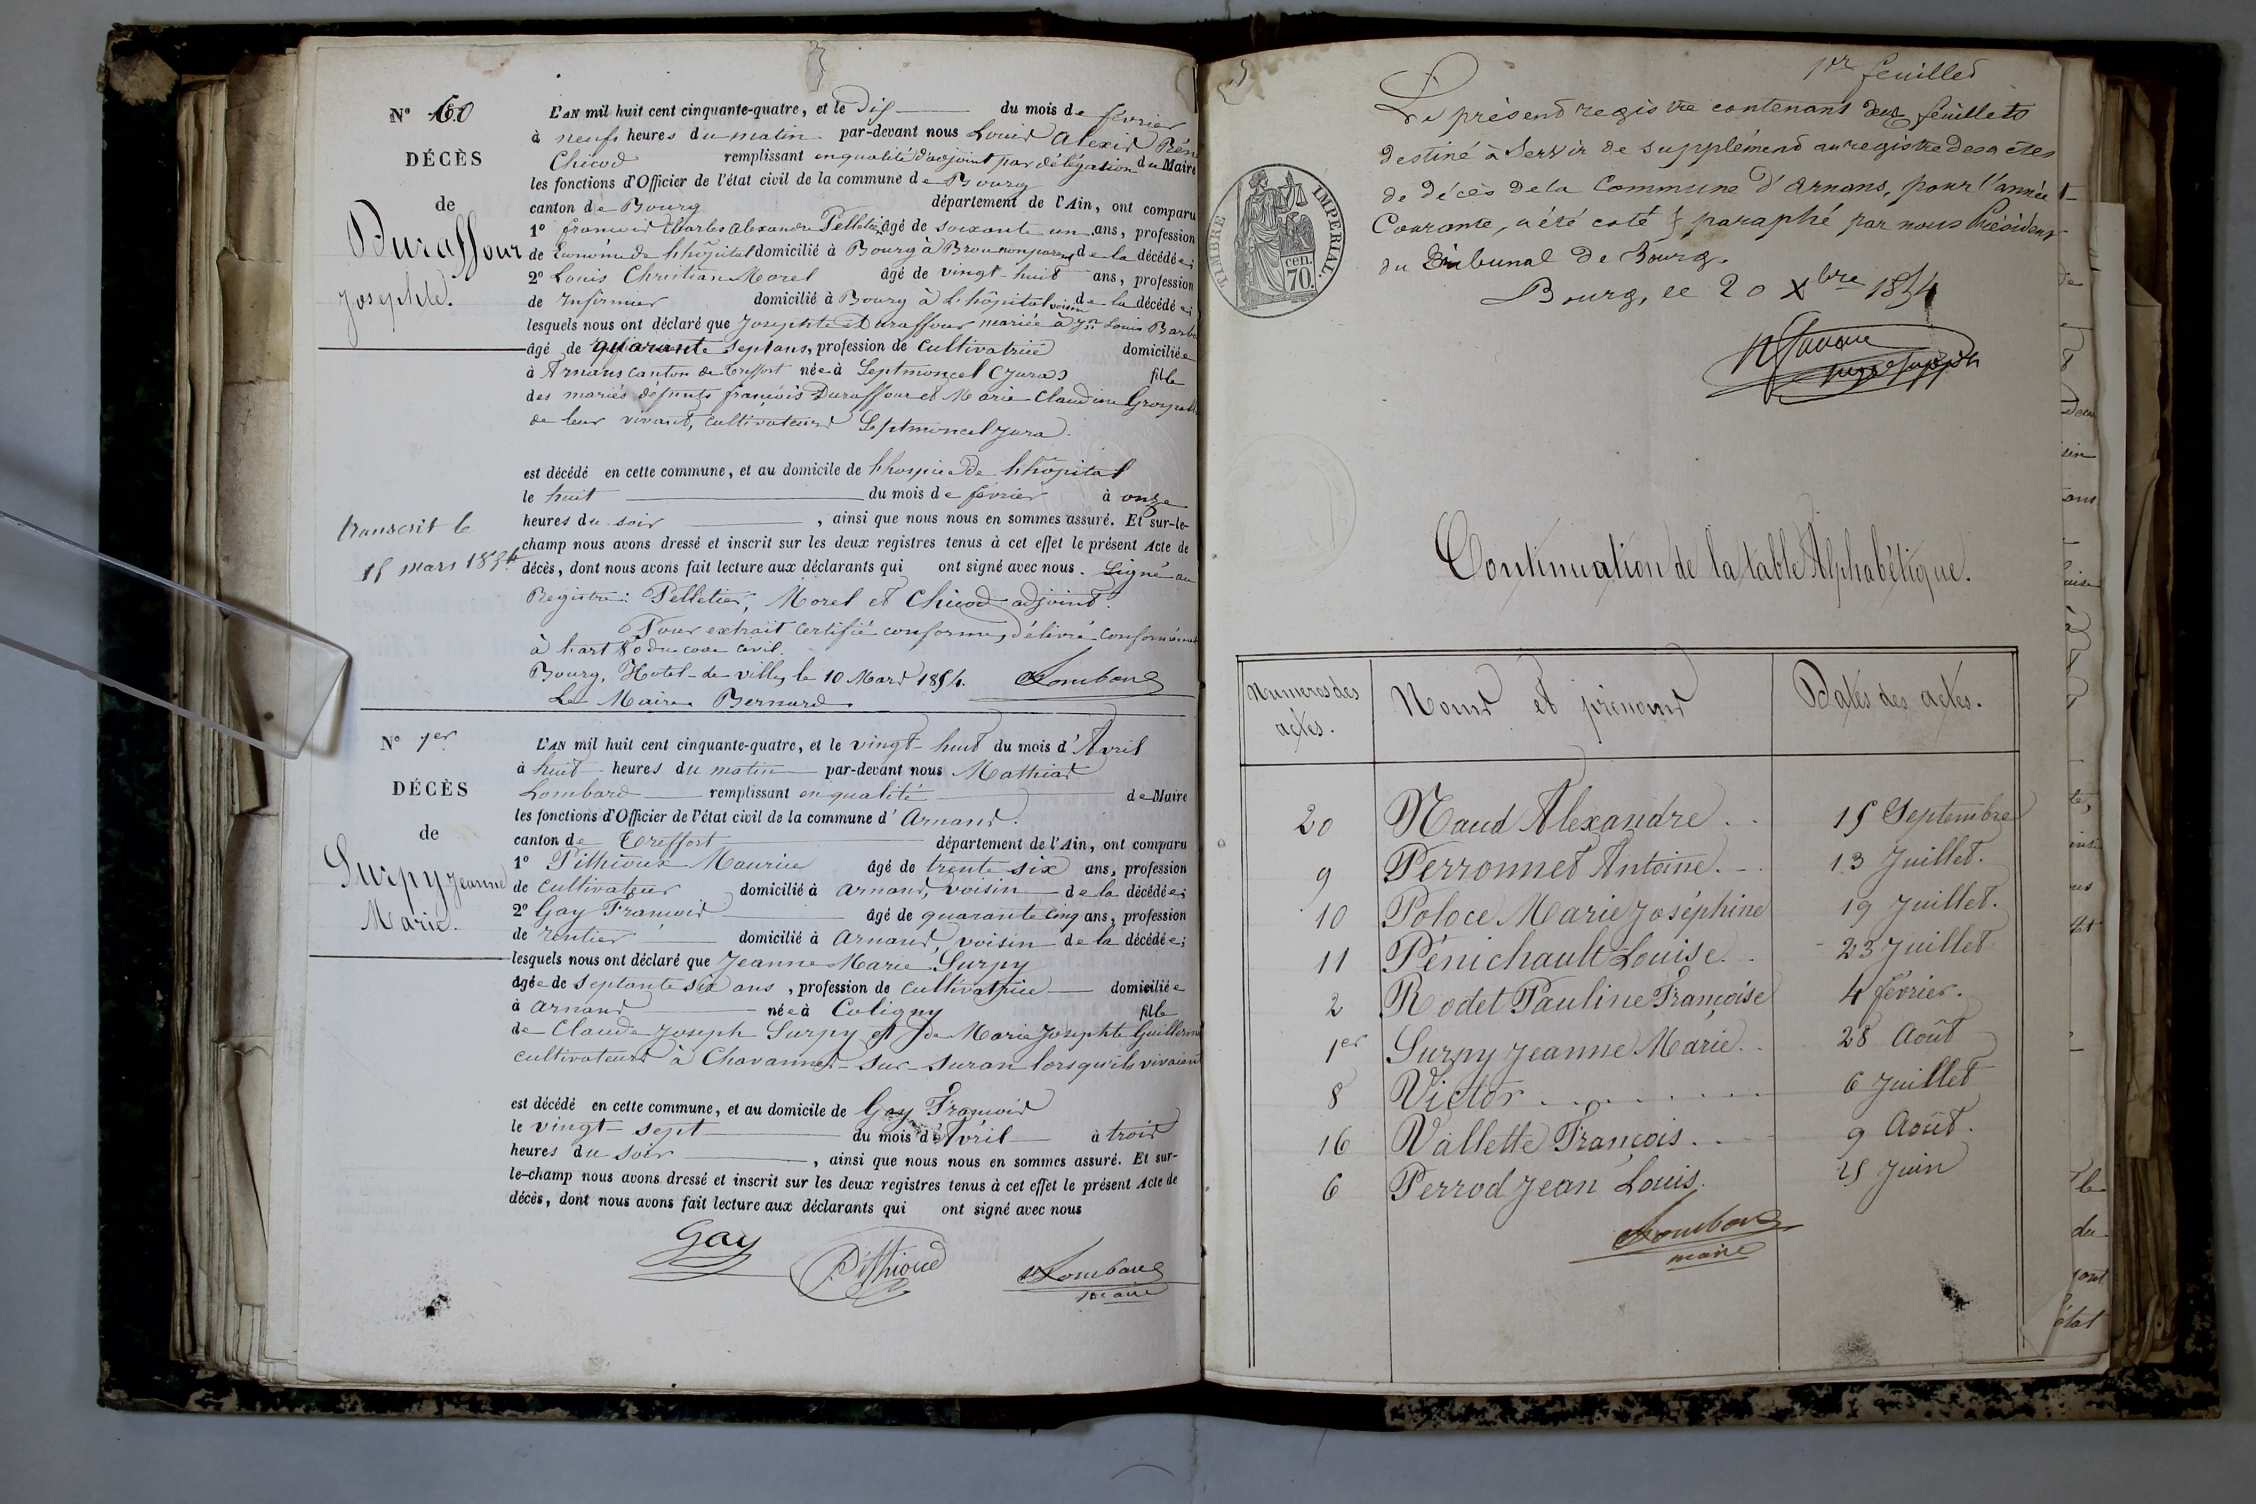 N° 60
DÉCÈS
de
Duraffour
Josephte.
transcrit le
15 mars 1854
L'AN mil huit cent cinquante-quatre, et le dix du mois de février
à neuf heures du matin par-devant nous Louis Alexis
Chicod remplissant en qualité d'adjoint par délégation du Maire
les fonctions d'Officier de l'état civil de la commune de Bourg
canton de Bourg département de l'Ain, ont comparu
1° françois Charles Alexandre Pelletier âgé de soixante un ans, profession
de Econôme de l'hôpital domicilié à Bourg à Brou non parent de la décédée;
2° Louis Christian Morel âgé de vingt huit ans, profession
de Infirmier domicilié à Bourg à l'hôpital voisin de la décédée;
lesquels nous ont déclaré que Josephte Duraffour mariée à Jn Louis
âgé de quarante sept ans, profession de Cultivatrice domiciliée
à Arnans canton de Treffort née à Septmoncel (Jura) fille
des mariés défunts françois Duraffour et Marie Claudine
de leur vivant, cultivateurs Septmoncel Jura.
est décédé en cette commune, et au domicile de l'hospice de l'hôpital
le huit du mois de février à onze
heures du soir , ainsi que nous nous en sommes assuré. Et sur-le-
champ nous avons dressé et inscrit sur les deux registres tenus à cet effet le présent Acte de
décès, dont nous avons fait lecture aux déclarants qui ont signé avec nous. Signé au
Registre: Pelletier, Morel et Chicod adjoint.
Pour extrait certifié conforme, délivré conformément
à l'art 80 du code civil.
Bourg, Hotel-de-ville, le 10 Mars 1854. Lombard
Le Maire Bernard
N° 1er
DÉCÈS
de
Surpy Jeanne
Marie.
L'AN mil huit cent cinquante-quatre, et le vingt-huit du mois d'Avril
à huit heures du matin par-devant nous Mathias
Lombard remplissant en qualité de Maire
les fonctions d'Officier de l'état civil de la commune d'Arnans.
canton de Treffort département de l'Ain, ont comparu
1° Pithioux Maurice âgé de trente six ans, profession
de cultivateur domicilié à Arnans, voisin de la décédée;
2° Gay François âgé de quarante cinq ans, profession
de rentier domicilié à Arnans, voisin de la décédée;
lesquels nous ont déclaré que Jeanne Marie Surpy
âgée de septante six ans, profession de cultivatrice domiciliée
à Arnans née à Coligny fille
de Claude Joseph Surpy et de Marie Josephte
cultivateurs à Chavannes-sur-Suran lorsqu'ils vivaient
est décédé en cette commune, et au domicile de Gay François
le vingt-sept du mois d'Avril à trois
heures du soir , ainsi que nous nous en sommes assuré. Et sur-
le-champ nous avons dressé et inscrit sur les deux registres tenus à cet effet le présent Acte de
décès, dont nous avons fait lecture aux déclarants qui ont signé avec nous
Gay Pithioud Lombard
maire
1er feuillet
Le présent registre contenant deux feuillets
destiné à servir de supplément au registre des actes
de décès de la Commune d'Arnans, pour l'année
Courante, a été coté & paraphé par nous Président
du tribunal de Bourg.
Bourg, le 20 Xbre 1854
TIMBRE IMPERIAL.
cen.
70.
Continuation de la table Alphabétique.
Numéros des actes. Noms et prénoms Dates des actes.
20 Naud Alexandre 15 Septembre
9 Perronnet Antoine. 13 Juillet.
10 Poloce Marie Joséphine 19 Juillet.
11 Pénichault Louise. 23 Juillet
2 Rodet Pauline Françoise 4 février.
1er Surpy Jeanne Marie. 28 Août
8 Victor 6 Juillet
16 Vallette François. 9 Août.
6 Perrod Jean Louis. 25 Juin
Lombard
maire